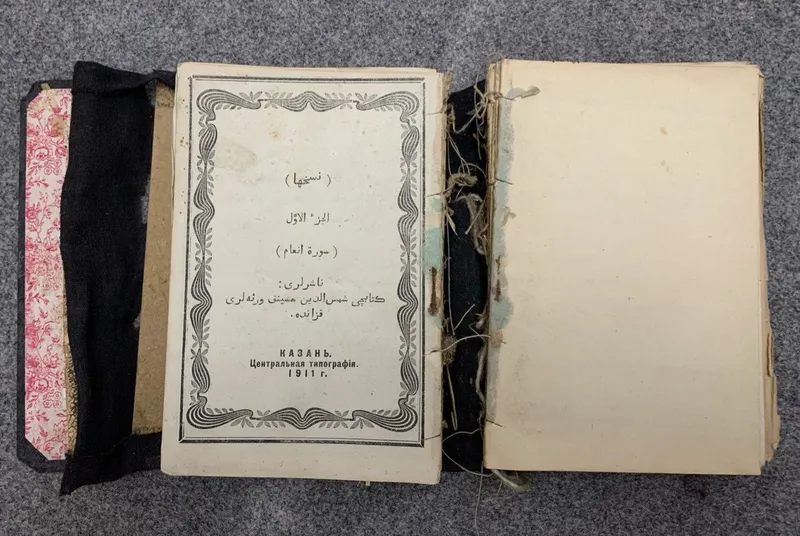 ( نسخها )
الجزء الاوّل
( سورة انعام )
ناشرلرى:
كتابچى شمس الدين حسينف ورثه‌لرى
قزانده.
КАЗАНЬ.
Центральная типографія.
1911 г.